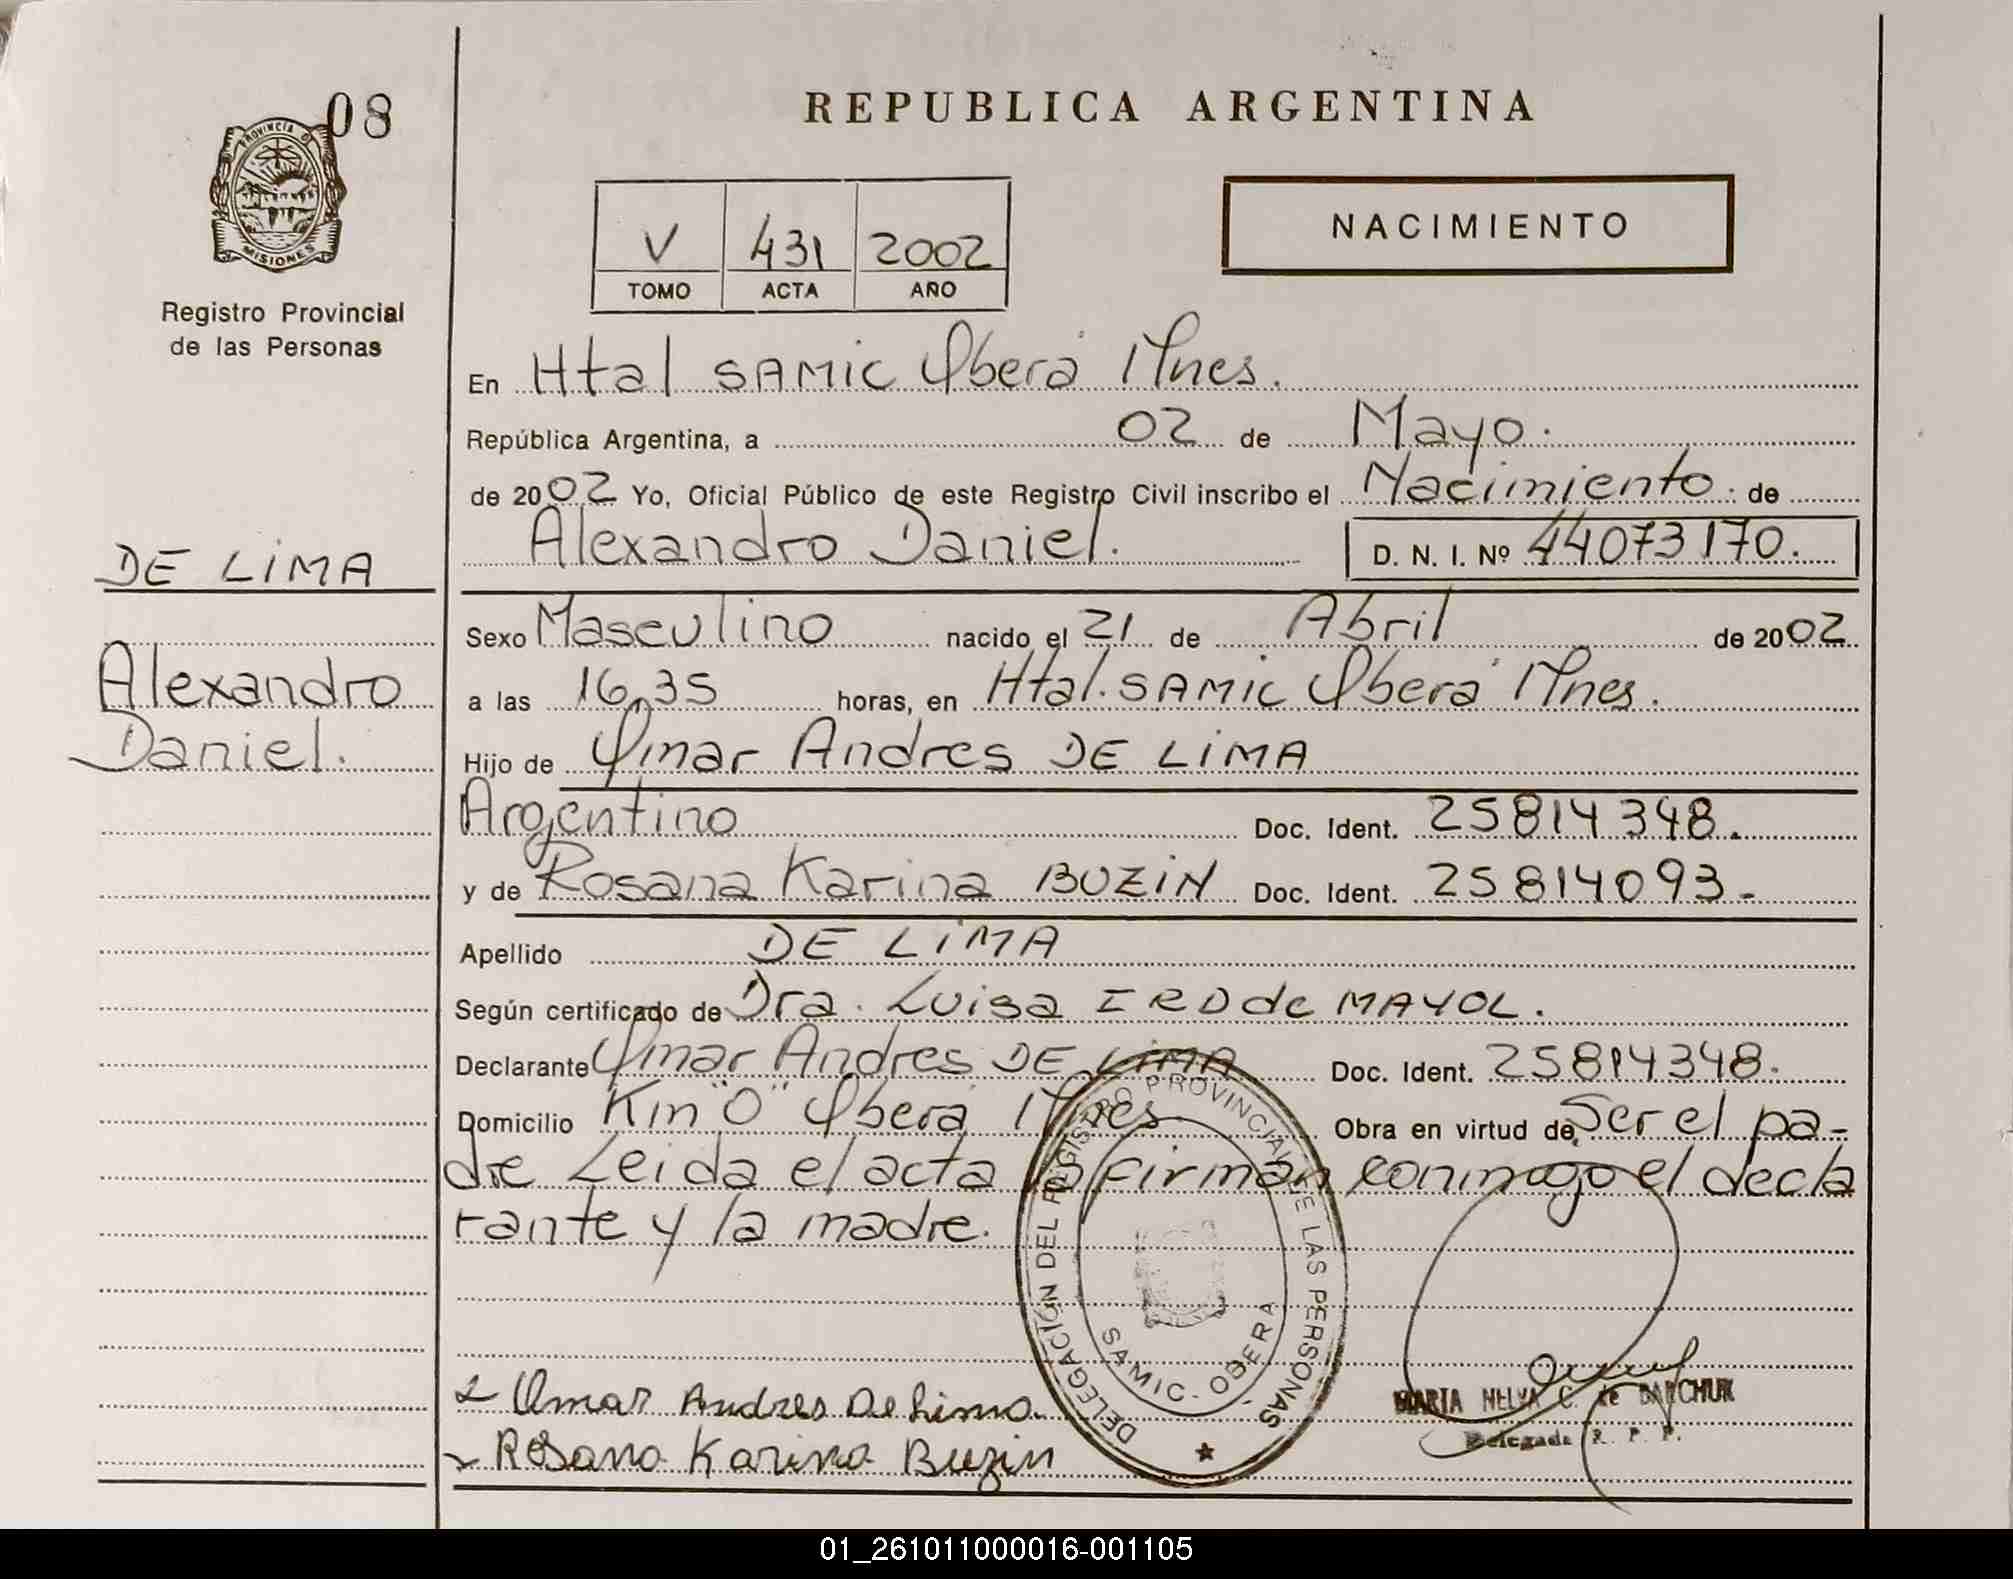 08
PROVINCIA DE
MISIONES
Registro Provincial
de las Personas
REPUBLICA ARGENTINA
V 431 2002
TOMO ACTA AÑO
NACIMIENTO
En Htal SAMIC Oberá Mnes.
República Argentina, a 02 de Mayo.
de 2002 Yo, Oficial Público de este Registro Civil inscribo el Nacimiento. de
Alexandro Daniel. D. N. I. Nº 44073170.
DE LIMA
Alexandro
Daniel.
Sexo Masculino nacido el 21 de Abril de 2002
a las 16,35 horas, en Htal. SAMIC Oberá Mnes.
Hijo de Omar Andres DE LIMA
Argentino Doc. Ident. 25814348.
y de Rosana Karina BUZIN Doc. Ident. 25814093-
Apellido DE LIMA
Según certificado de Dra. Luisa IRD de MAYOL.
Declarante Omar Andres DE LIMA Doc. Ident. 25814348.
Domicilio Km "0" Oberá Mnes Obra en virtud de, Ser el pa-
dre Leida el acta la firman conmigo el decla
rante y la madre.
DELEGACIÓN DEL REGISTRO PROVINCIAL DE LAS PERSONAS
SAMIC - OBERA
Omar Andres De Lima
Rosana Karina Buzin
MARIA NELVA C. de BARCHUK
Delegada R. P. P.
01_261011000016-001105